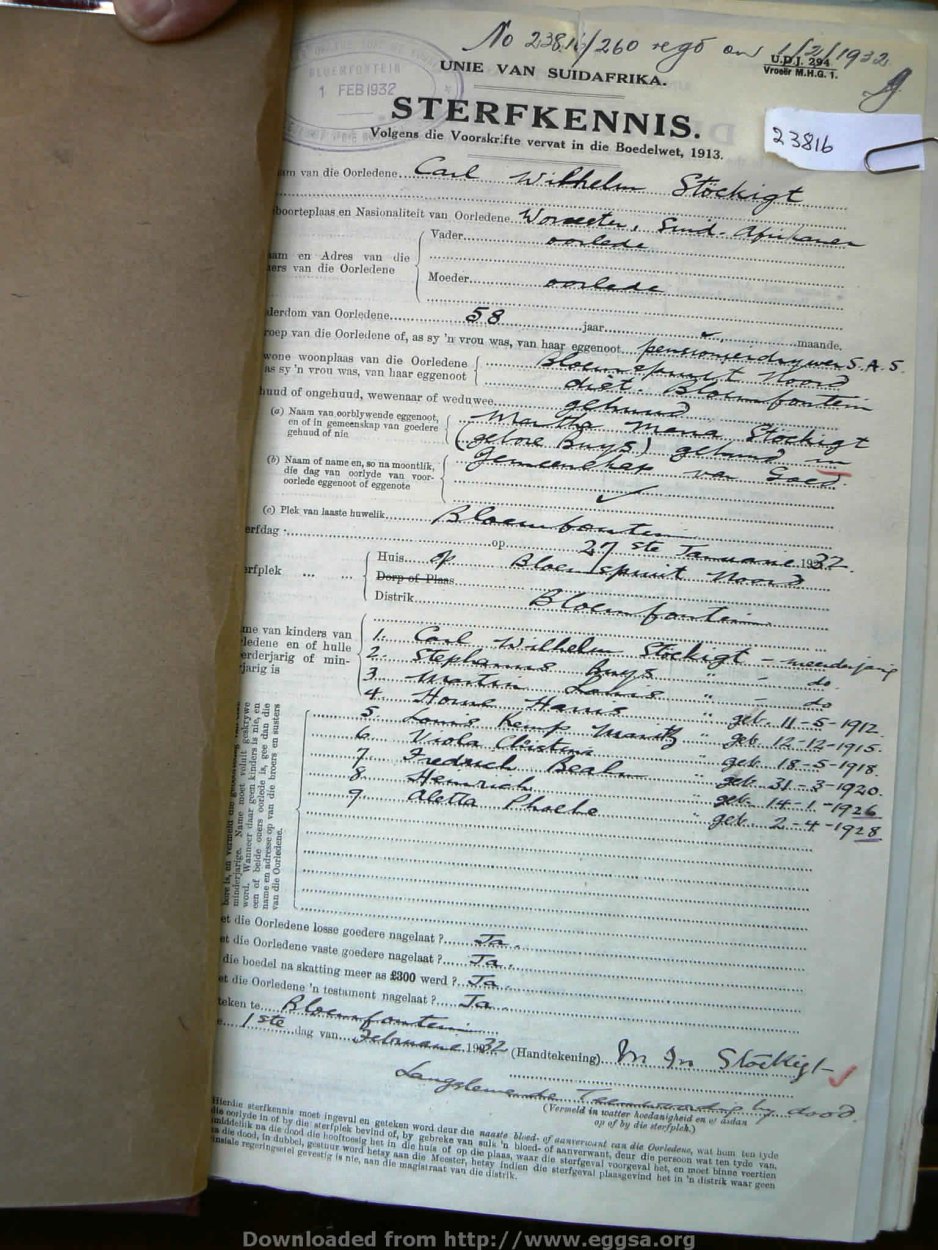 No 23816/260 regd on 1/2/1932
U.D.J. 294
Vroeër M.H.G. 1.
BLOEMFONTEIN
1 FEB 1932
UNIE VAN SUIDAFRIKA.
STERFKENNIS.
23816
Volgens die Voorskrifte vervat in die Boedelwet, 1913.
am van die Oorledene Carl Wilhelm Stöckigt
boorteplaas en Nasionaliteit van Oorledene Worcester, Suid-Afrikaner
Vader oorlede
am en Adres van die
ers van die Oorledene
Moeder oorlede
derdom van Oorledene 58 jaar maande.
roep van die Oorledene of, as sy 'n vrou was, van haar eggenoot pensioenerdrywer S.A.S.
wone woonplaas van die Oorledene
as sy 'n vrou was, van haar eggenoot
Bloemspruit Noord
dist. Bloemfontein
huud of ongehuud, wewenaar of weduwee gehuud
(a) Naam van oorblywende eggenoot,
en of in gemeenskap van goedere
gehuud of nie
Martha Maria Stöckigt
(gebore Buys) gehuud in
Gemeenskap van Goed.
(b) Naam of name en, so na moontlik,
die dag van oorlyde van voor-
oorlede eggenoot of eggenote
(c) Plek van laaste huwelik Bloemfontein
erfdag op 27 ste Januarie 1932.
Huis op Bloemspruit Noord
erfplek
Dorp of Plaas
Distrik Bloemfontein
me van kinders van
ledene en of hulle
erderjarig of min-
jarig is
1. Carl Wilhelm Stöckigt - meerderjarig
2. Stephanus Buys " - do
3. Martin Louis " - do
4. Horne Harris " geb. 11-5-1912
5. Louis Kemp Maritz " geb. 12-12-1915.
6. Viola Christina geb. 18-5-1918.
7. Fredrich Beale geb. 31-3-1920.
8. Heinrich geb. 14-1-1926
9. Aletta Phoebe " geb. 2-4-1928
minderjarige. Name moet voluit geskrywe
word. Wanneer daar geen kinders is nie, en
een of beide ouers oorlede is, gee dan die
name en adresse op van die broers en susters
van die Oorledene.
et die Oorledene losse goedere nagelaat? Ja.
et die Oorledene vaste goedere nagelaat? Ja.
die boedel na skatting meer as £300 werd? Ja.
et die Oorledene 'n testament nagelaat? Ja
teken te Bloemfontein
e 1 ste dag van Februarie 1932
(Handtekening) M M Stöckigt
Langslewende Teenwoordig by dood.
(Vermeld in watter hoedanigheid en of aldan
op of by die sterfplek.)
Hierdie sterfkennis moet ingevul en geteken word deur die naaste bloed- of aanverwant van die Oorledene, wat hom ten tyde
die oorlyde in of by die sterfplek bevind of, by gebreke van sulk 'n bloed- of aanverwant, deur die persoon wat ten tyde van,
middelik na die dood die hooftoesig het in die huis of op die plaas, waar die sterfgeval voorgeval het, en moet binne veertien
na die dood, in dubbel, gestuur word hetsy aan die Meester, hetsy indien die sterfgeval plaasgevind het in 'n distrik waar geen
insiale regeringsetel gevestig is nie, aan die magistraat van die distrik.
Downloaded from http://www.eggsa.org